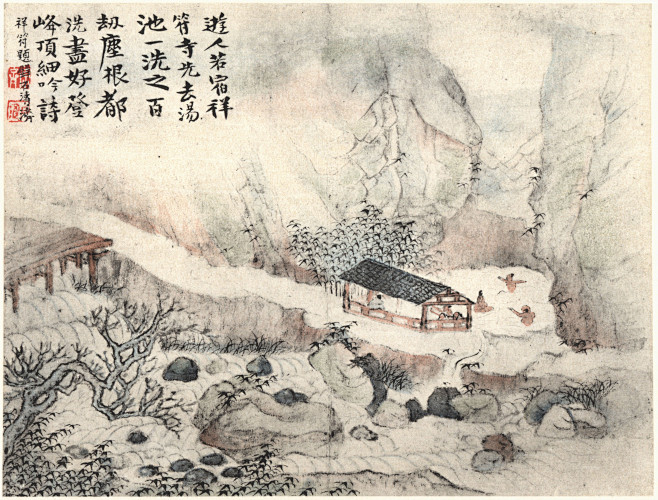 遊人若宿祥
符寺先去湯
池一洗之百
刼塵根都
洗盡好登
峰頂細吟詩
祥符題